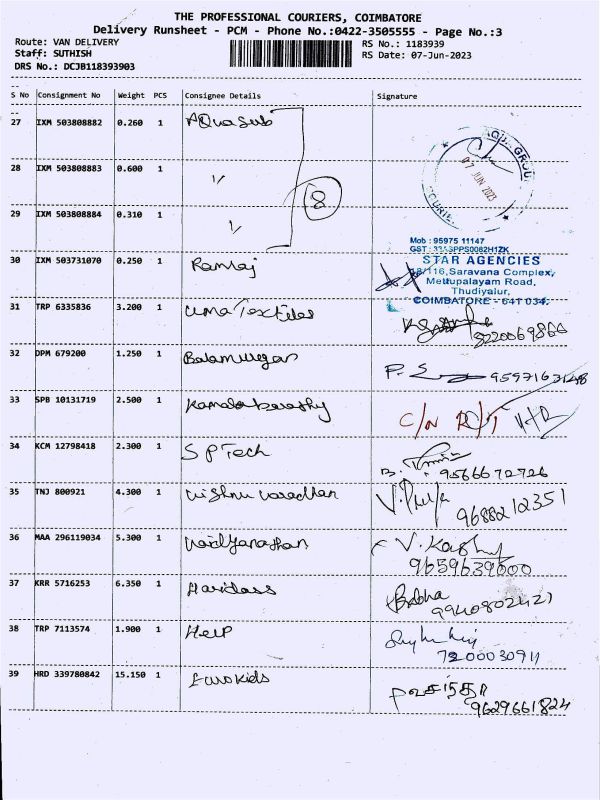 THE PROFESSIONAL COURIERS, COIMBATORE
Delivery Runsheet - PCM - Phone No.:0422-3505555 - Page No.:3
Route: VAN DELIVERY
RS No.: 1183939
Staff: SUTHISH
RS Date: 07-Jun-2023
DRS No.: DCJB118393903
S No Consignment No Weight PCS Consignee Details Signature
27 IXM 503808882 0.260 1 AQuasub
28 IXM 503808883 0.600 1 "
8
29 IXM 503808884 0.310 1 "
AQUA GROUP
07 JUN 2023
Mob : 95975 11147
30 IXM 503731070 0.250 1 Ramraj
STAR AGENCIES
8/116, Saravana Complex,
Mettupalayam Road,
Thudiyalur,
COIMBATORE - 641 034.
31 TRP 6335836 3.200 1 Uma Textiles
32 DPM 679200 1.250 1 Balamurugan
33 SPB 10131719 2.500 1 C/N
34 KCM 12798418 2.300 1 S P Tech
9566672726
35 TNJ 800921 4.300 1 Vishnu varadhan
9688212351
36 MAA 296119034 5.300 1 Vaidyanathan
9659639000
37 KRR 5716253 6.350 1 Haridass
38 TRP 7113574 1.900 1 Help
7200030911
39 HRD 339780842 15.150 1 Eurokids
9629661824